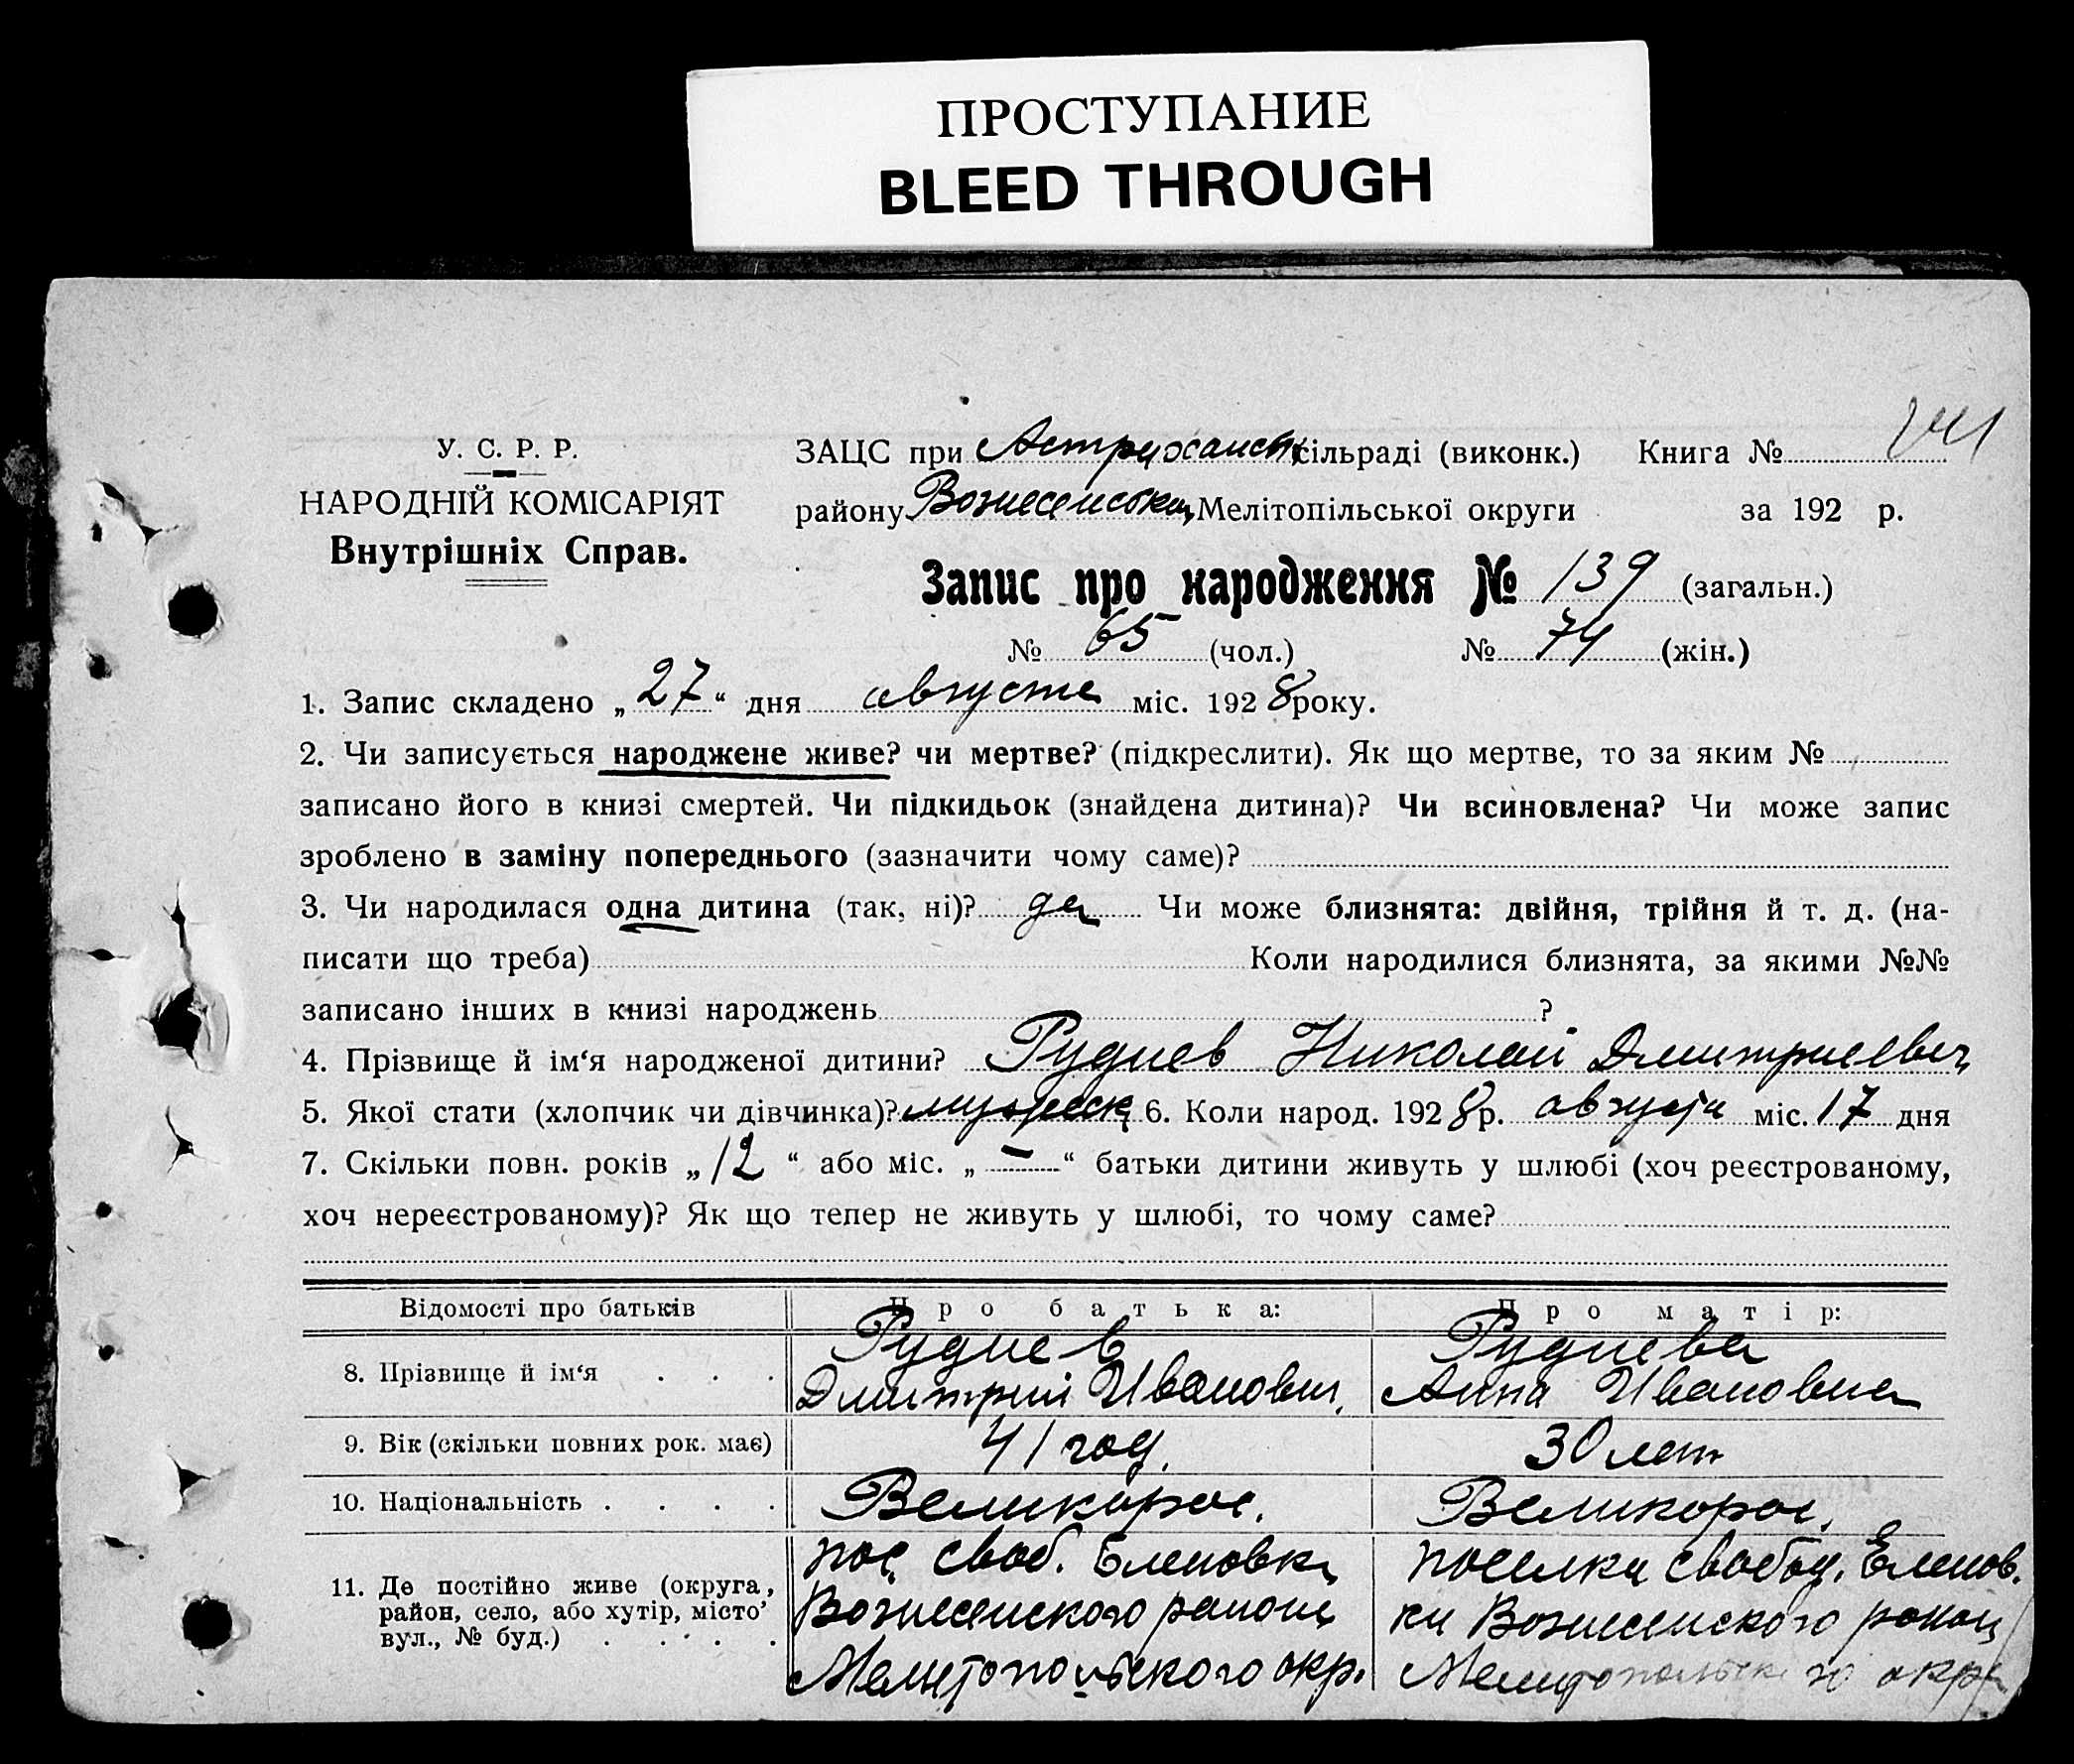 ПРОСТУПАНИЕ
BLEED THROUGH
У. С. Р. Р.
НАРОДНІЙ КОМІСАРІЯТ
Внутрішніх Справ.
ЗАЦС при Астраханск сільраді (виконк.) Книга №
району Вознесенськ Мелітопільської округи за 192 р.
Запис про народження № 139 (загальн.)
№ 65 (чол.) № 74 (жін.)
1. Запис складено „27“ дня августа міс. 1928 року.
2. Чи записується народжене живе? чи мертве? (підкреслити). Як що мертве, то за яким №
записано його в книзі смертей. Чи підкидьок (знайдена дитина)? Чи всиновлена? Чи може запис
зроблено в заміну попереднього (зазначити чому саме)?
3. Чи народилася одна дитина (так, ні)? да Чи може близнята: двійня, трійня й т. д. (на-
писати що треба) Коли народилися близнята, за якими №№
записано інших в книзі народжень ?
4. Прізвище й ім‘я народженої дитини? Руднев Николай Дмитриевич
5. Якої стати (хлопчик чи дівчинка)? мужеск 6. Коли народ. 1928 р. августа міс. 17 дня
7. Скільки повн. років „12“ або міс. „—“ батьки дитини живуть у шлюбі (хоч реєстрованому,
хоч нереєстрованому)? Як що тепер не живуть у шлюбі, то чому саме?
Відомості про батьків Про батька: Про матір:
8. Прізвище й ім‘я . . . Руднев Дмитрий Иванович. Руднева Анна Ивановна
9. Вік (скільки повних рок. має) 41 год. 30 лет
10. Національність . . . . Великорос. Великорос.
11. Де постійно живе (округа, район, село, або хутір, місто’ вул., № буд.) . . . . .
пос. своб. Еленовка
Вознесенского района
Мелитопольского окр.
поселка свобод. Еленов.
ки Вознесенского район
Мелитопольск го окр